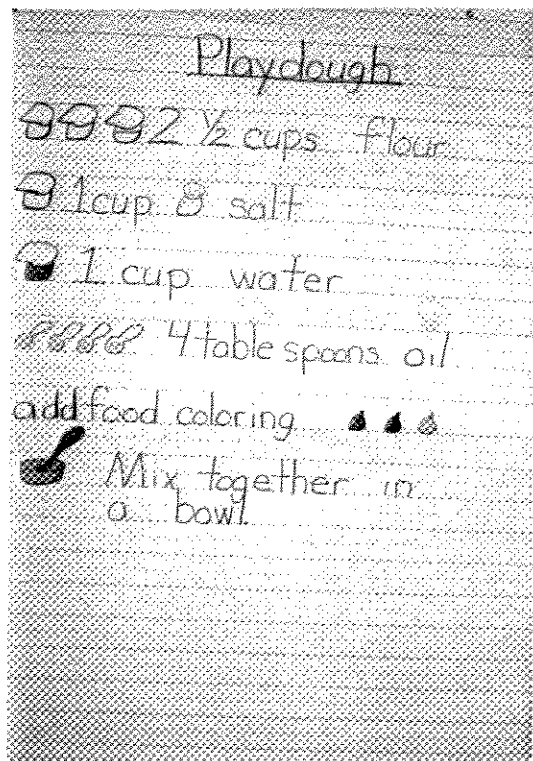 Playdough
2 ½ cups flour
1 cup salt
1 cup water
4 table spoons oil
add food coloring
Mix together in
a bowl